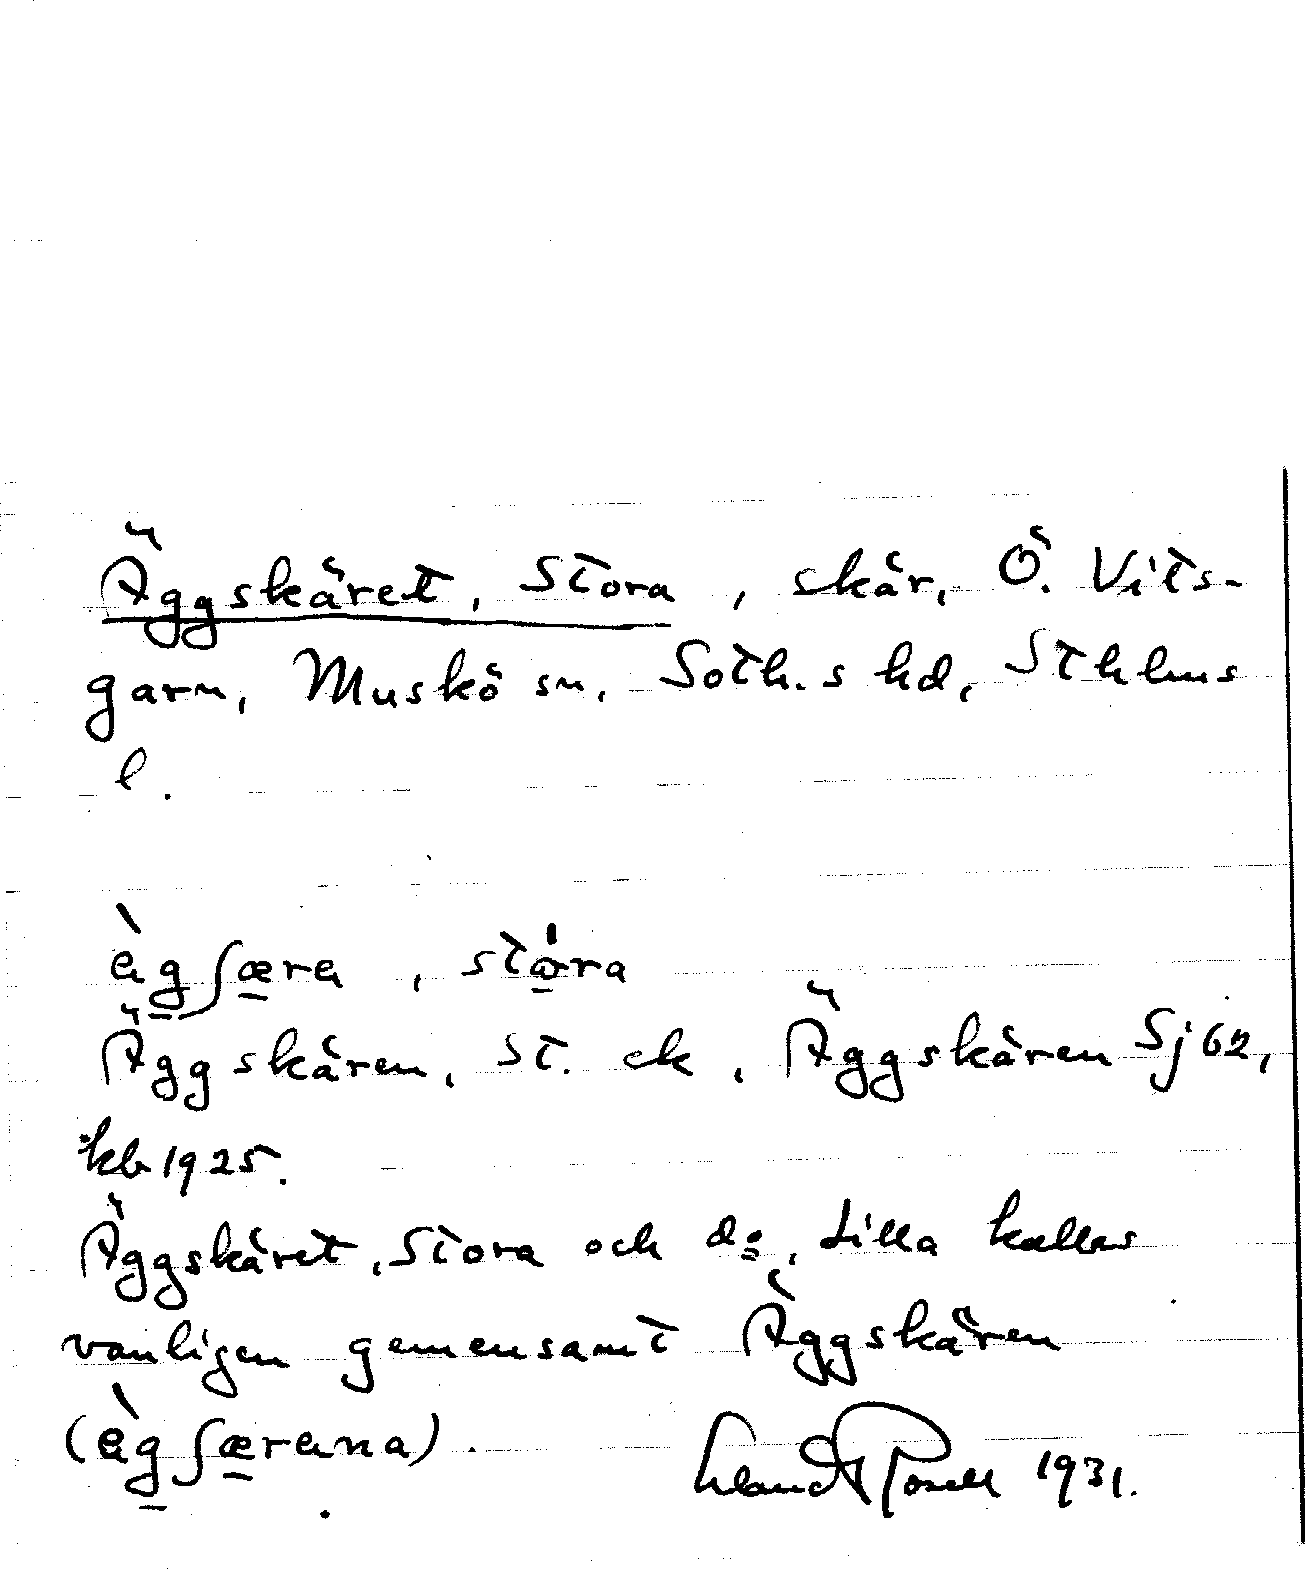 Äggskäret, Stora, skär, Ö. Vits-
garn, Muskö sn. Soth.s hd, Sthlms
l.
ὲg̲ʃæ̲re, stó̲rra
Äggskären, St. ek, Äggskären Sj 62,
*kb 1925.
Äggskäret, Stora och d:o, Lilla kallas
vanligen gemensamt Äggskären
(ὲg̲ʃæ̲rena).
Erland Rosell 1931.